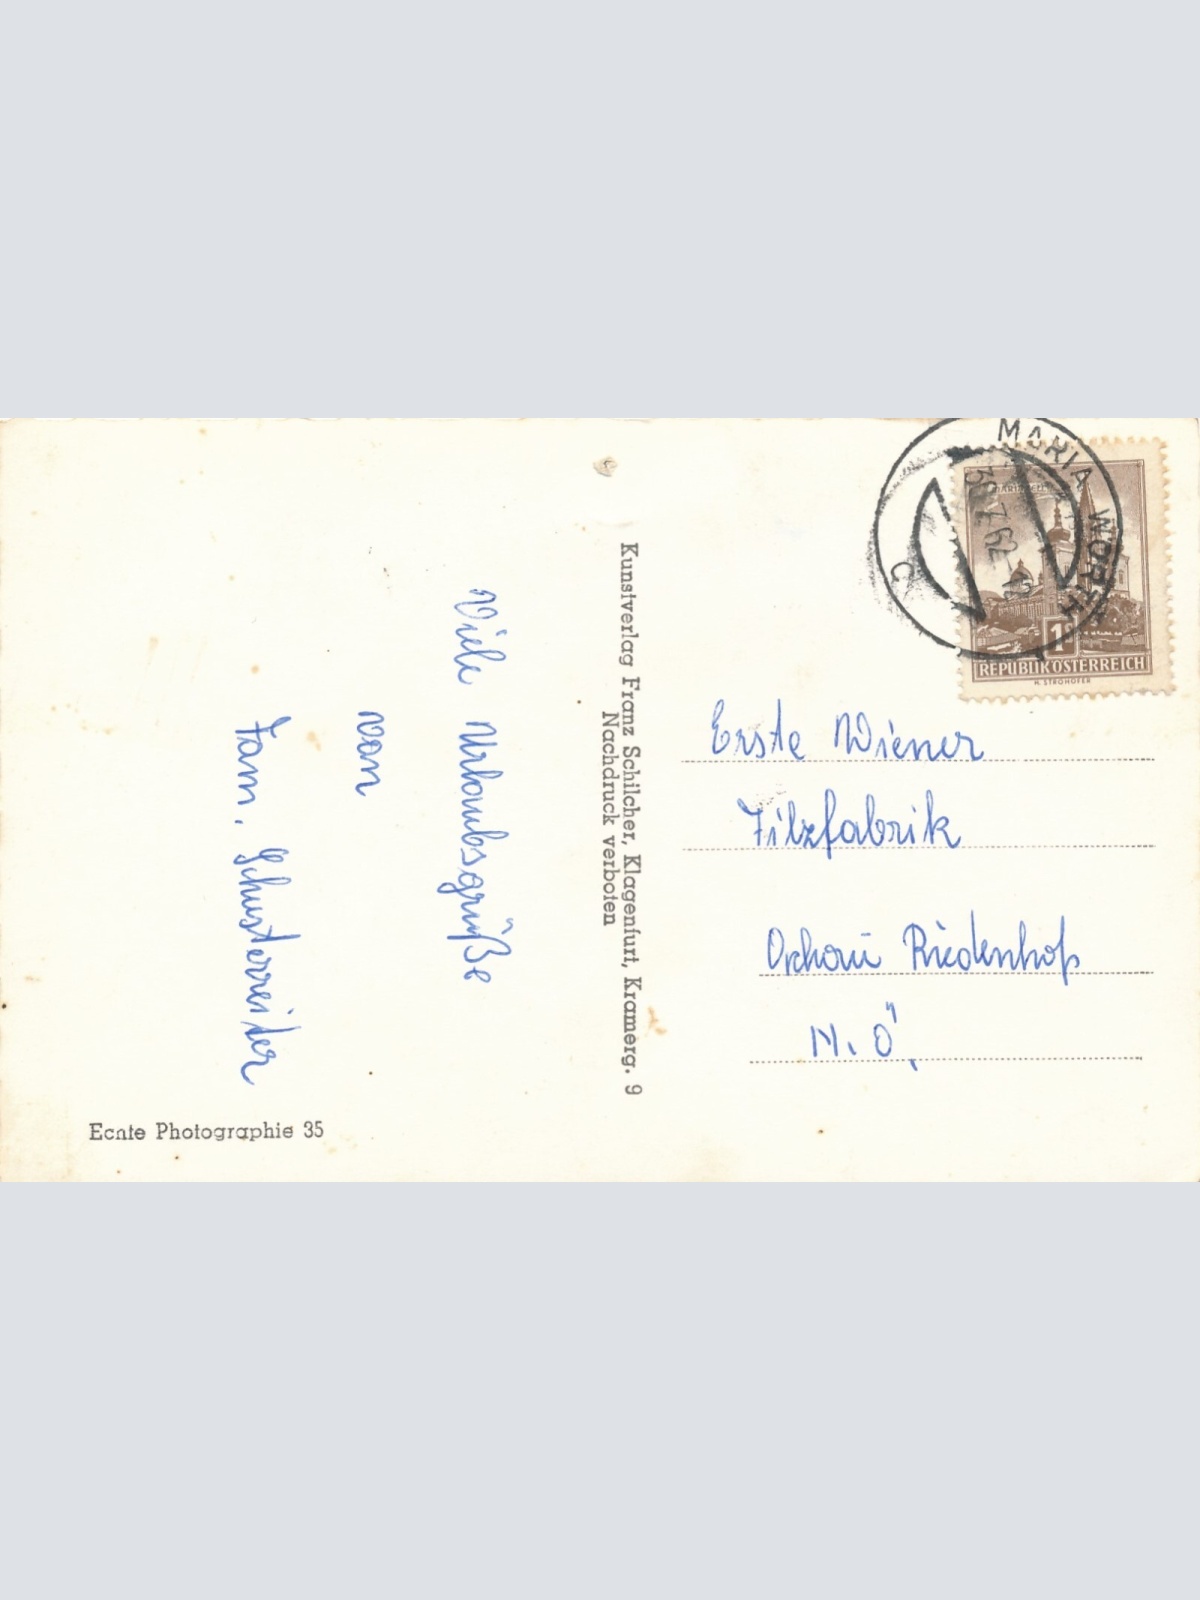 Viele Urlaubsgrüße
von
Fam. Schusterreiter
Echte Photographie 35
Kunstverlag Franz Schilcher, Klagenfurt, Kramerg. 9
Nachdruck verboten
MARIA WÖRTH
30.7.62-12
C
1S
REPUBLIK ÖSTERREICH
H. STROHOFER
Erste Wiener
Filzfabrik
Ochau Riedenhof
N.Ö.